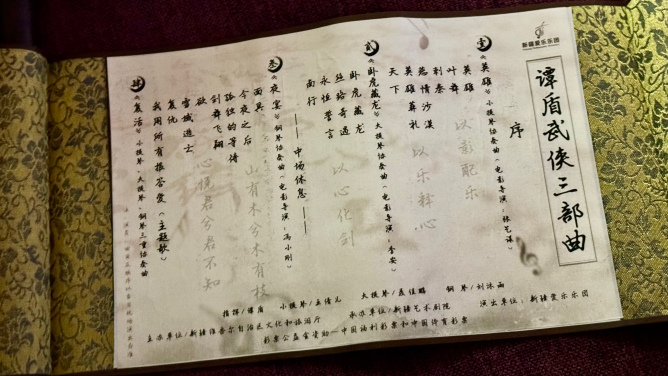 新疆爱乐乐团
谭盾武侠三部曲
序
壹
《英雄》小提琴协奏曲（电影导演：张艺谋）
英雄
叶舞
刺秦
慈情沙漠
英雄葬礼
天下
以影配乐
以乐释心
贰
《卧虎藏龙》大提琴协奏曲（电影导演：李安）
卧虎藏龙
丝路奇遇
永恒誓言
南行
以心化剑
——中场休息——
叁
《夜宴》钢琴协奏曲（电影导演：冯小刚）
面具
今夜之后
孤独的等待
剑舞飞翔
欲
山有木兮木有枝
心悦君兮君不知
肆
《复活》小提琴、大提琴、钢琴三重协奏曲
复仇
雪域道士
我用所有报答爱（主题歌）
指挥/谭盾 小提琴/王倩儿 大提琴/聂佳鹏 钢琴/刘沐雨
主办单位/新疆维吾尔自治区文化和旅游厅 承办单位/新疆艺术剧院 演出单位：新疆爱乐乐团
彩票公益金资助—中国福利彩票和中国体育彩票